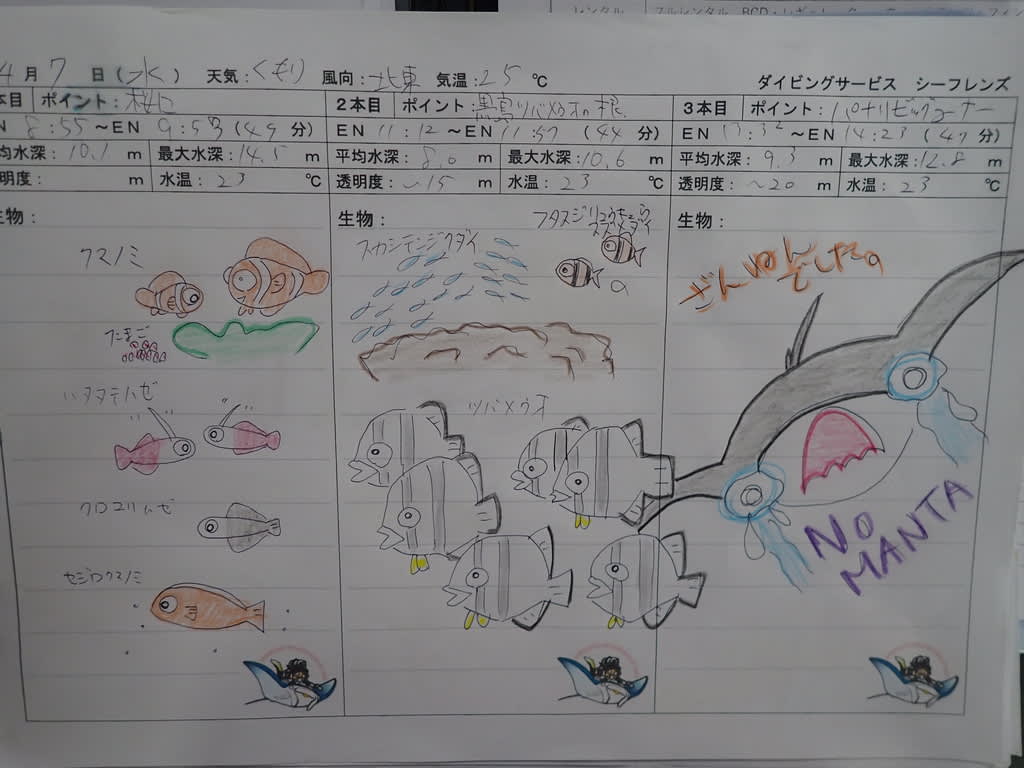 4月7日(水) 天気:くもり 風向:北東 気温:25℃
ダイビングサービス シーフレンズ
本目 ポイント:桜口
N 8:55~EN 9:53(49分)
均水深:10.1m 最大水深:14.5m
明度: m 水温:23℃
生物:
クマノミ
たまご
ハタタテハゼ
クロユリハゼ
セジロクマノミ
2本目 ポイント:黒島ツバメウオの根
EN 11:12~EN 11:57(44分)
平均水深:8.0m 最大水深:10.6m
透明度:~15m 水温:23℃
生物:
フタスジリュウキュウ
スズメダイ
スカシテンジクダイ
ツバメウオ
3本目 ポイント:パナリビッグコーナー
EN 13:32~EN 14:23(47分)
平均水深:9.3m 最大水深:12.8m
透明度:~20m 水温:23℃
生物:
ざんねん
でした。
NO
MANTA